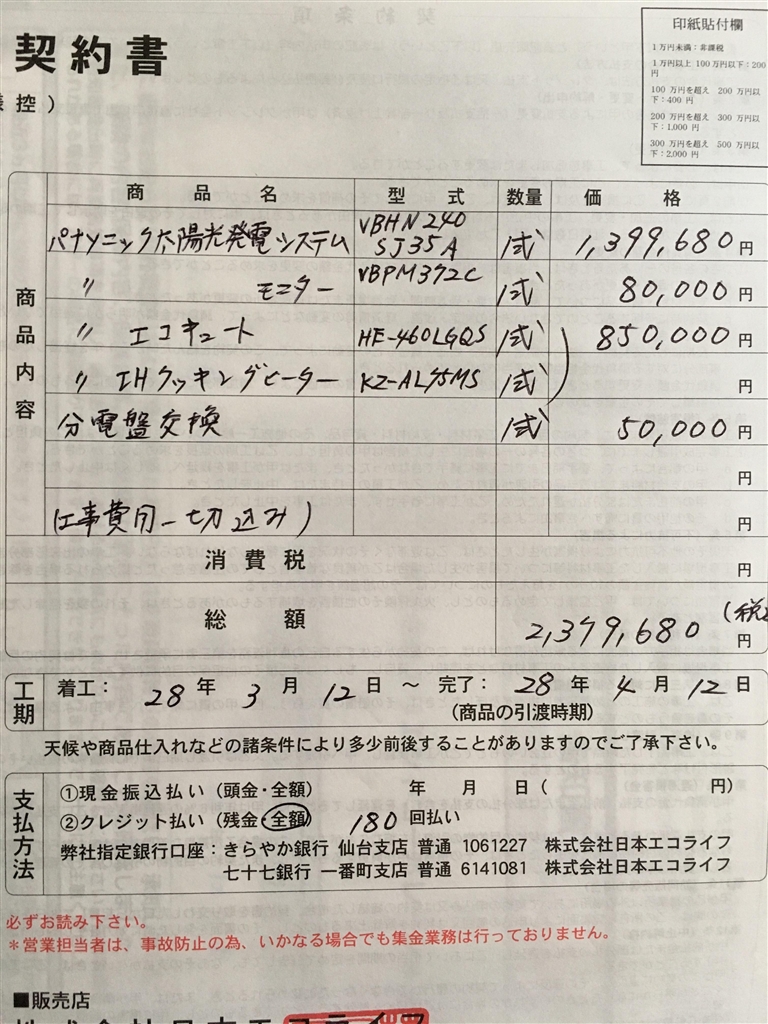 契約書
様控)
印紙貼付欄
1万円未満：非課税
1万円以上 100万円以下：200円
100万円を超え 200万円以下：400円
200万円を超え 300万円以下：1,000円
300万円を超え 500万円以下：2,000円
商品内容
商品名 型式 数量 価格
パナソニック太陽光発電システム VBHN240 SJ35A 1式 1,399,680円
〃 モニター VBPM372C 1式 80,000円
〃 エコキュート HE-460LGQS 1式 850,000円
〃 IHクッキングヒーター KZ-AL75MS 1式 円
分電盤交換 1式 50,000円
円
(工事費用一切込み) 円
消費税 円
総額 2,379,680円 (税
工期
着工： 28年 3月 12日 ～ 完了： 28年 4月 12日
(商品の引渡時期)
天候や商品仕入れなどの諸条件により多少前後することがありますのでご了承下さい。
支払方法
①現金振込払い (頭金・全額) 年 月 日 ( 円)
②クレジット払い (残金・全額) 180回払い
弊社指定銀行口座：きらやか銀行 仙台支店 普通 1061227 株式会社日本エコライフ
七十七銀行 一番町支店 普通 6141081 株式会社日本エコライフ
必ずお読み下さい。
＊営業担当者は、事故防止の為、いかなる場合でも集金業務は行っておりません。
■販売店
株式会社日本エコライフ